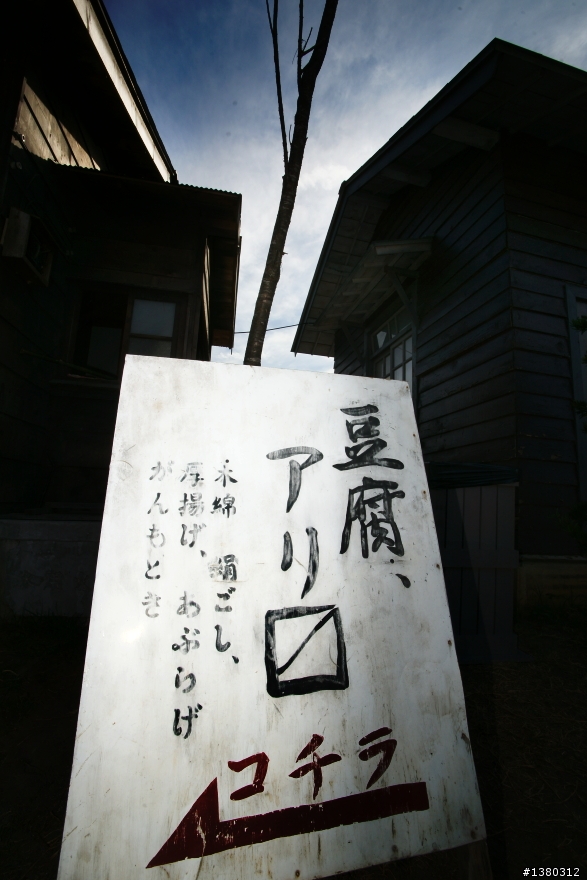 豆腐、
アリ〼
木綿 絹ごし、
厚揚げ、あぶらげ
がんもどき
コチラ
#1380312